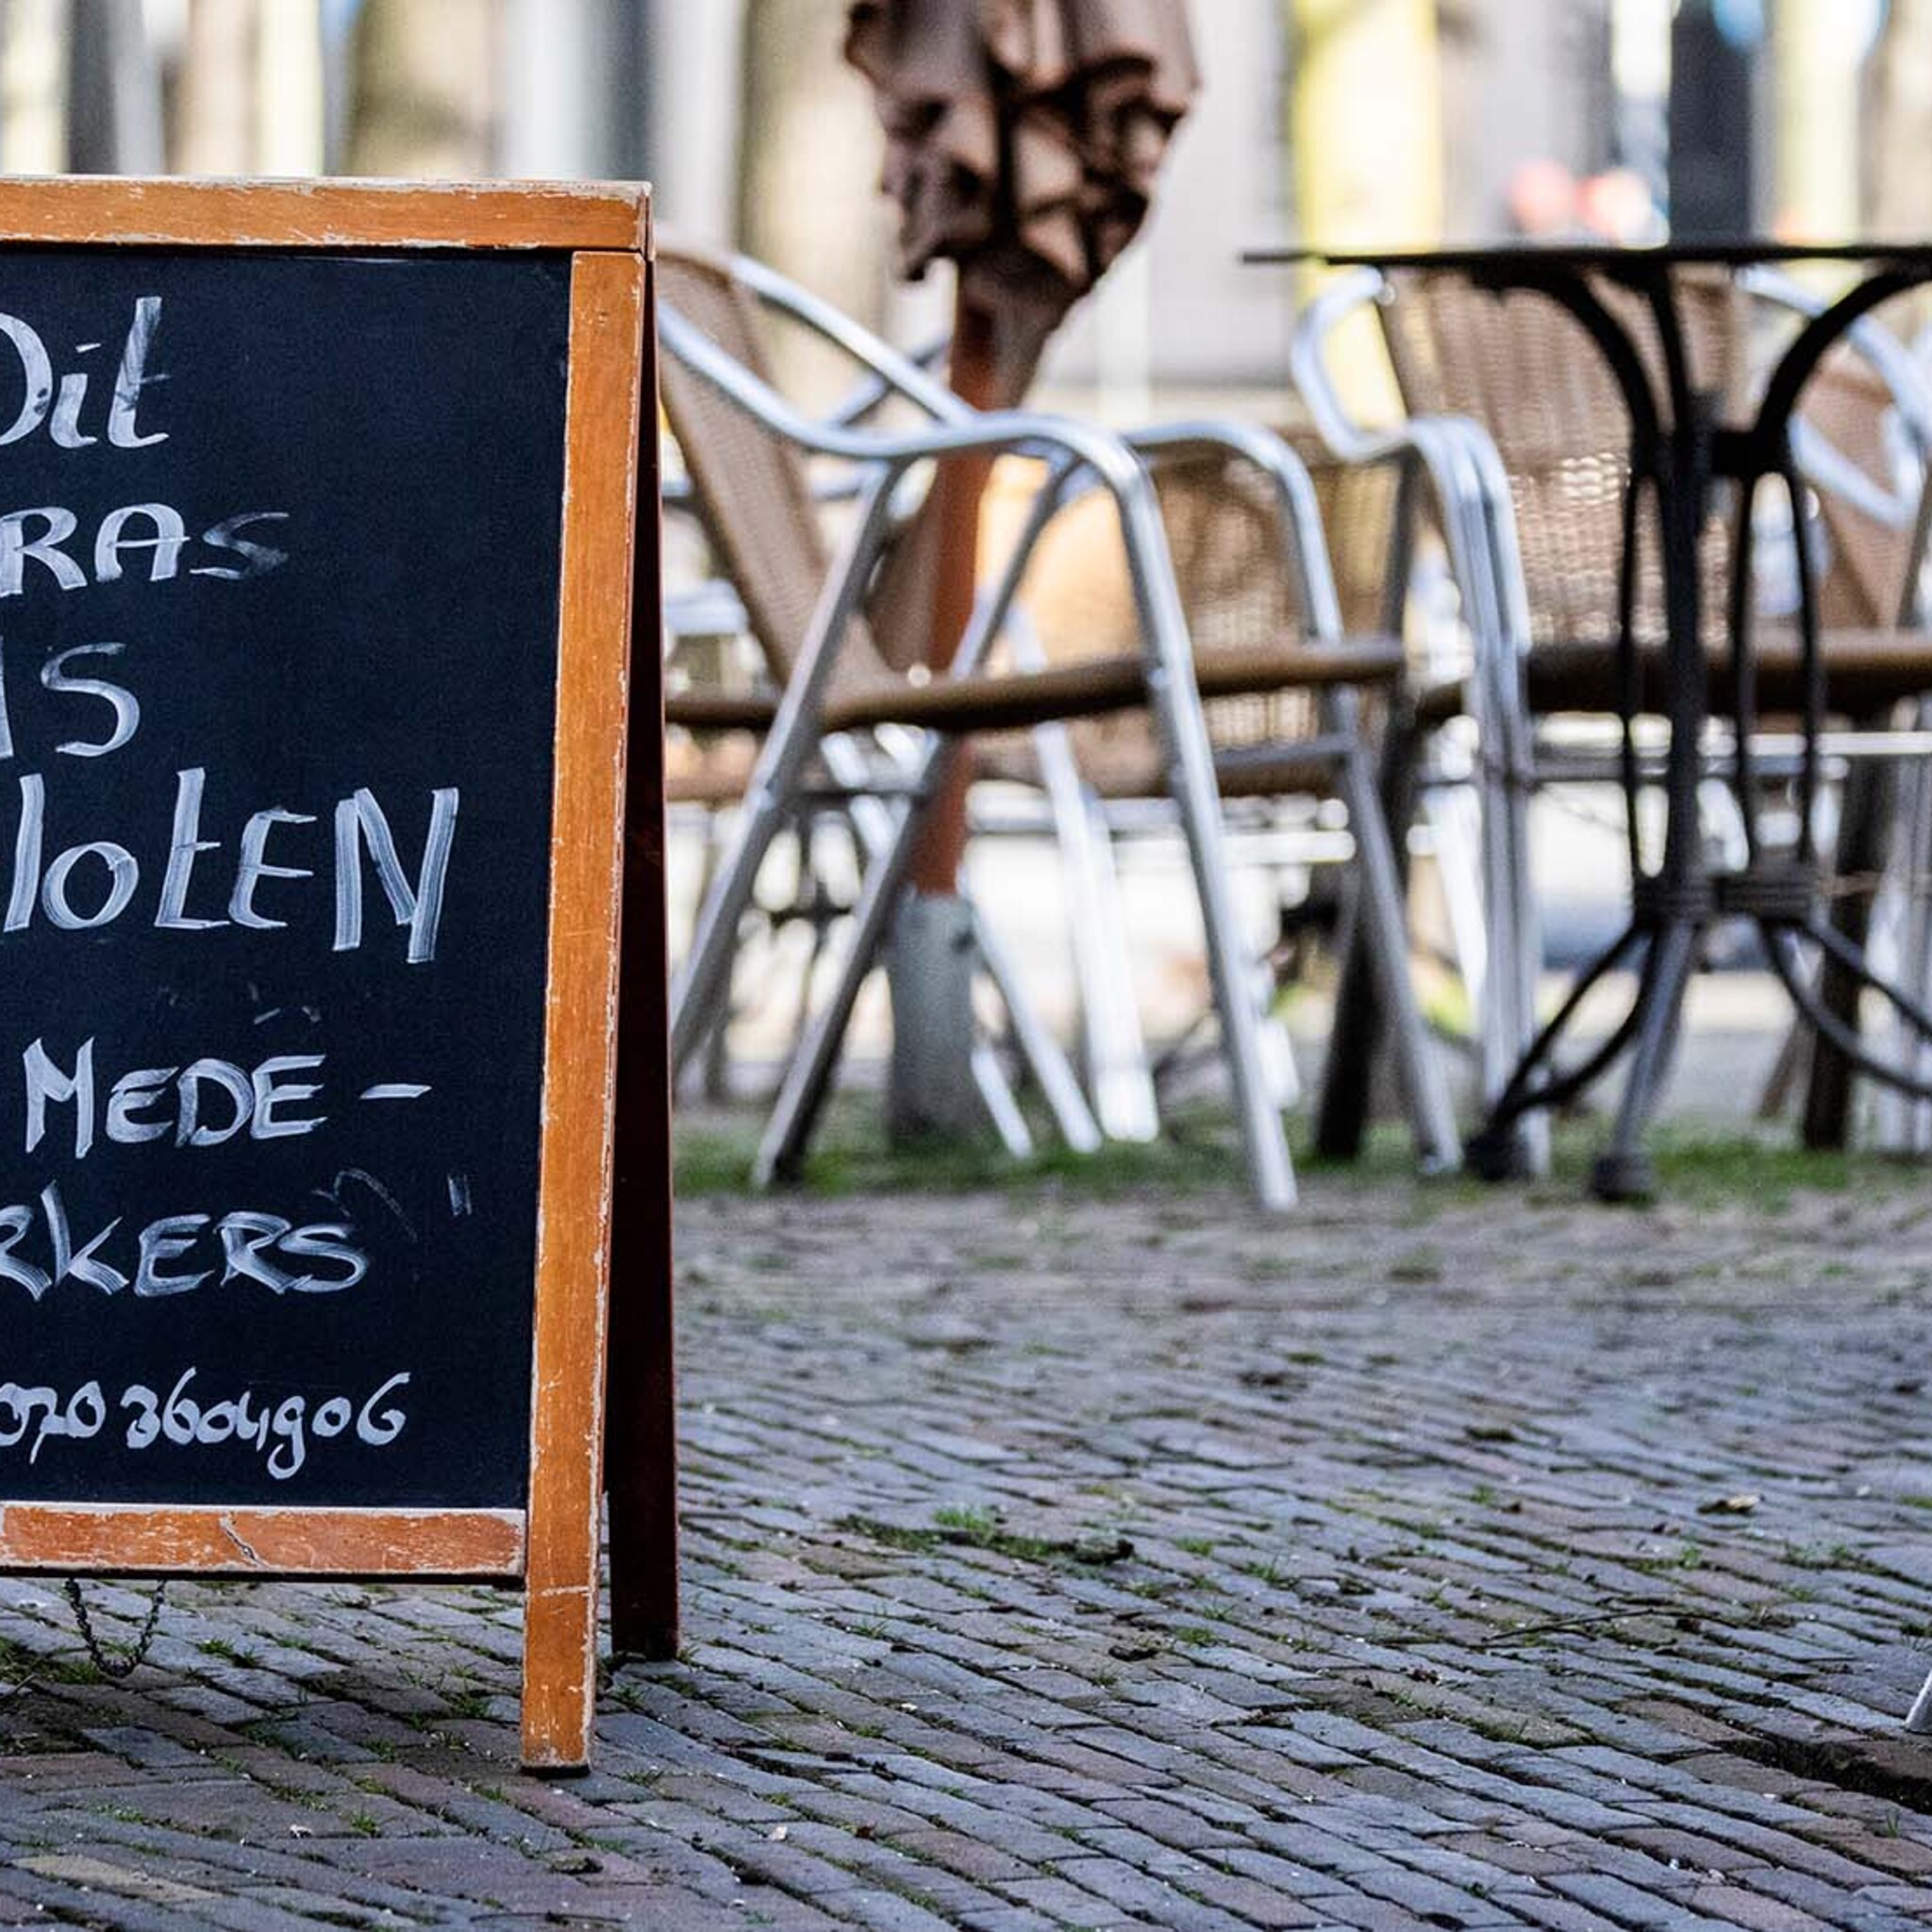 Dit
RAS
IS
loten
MEDE-
RKERS"
070 3604906